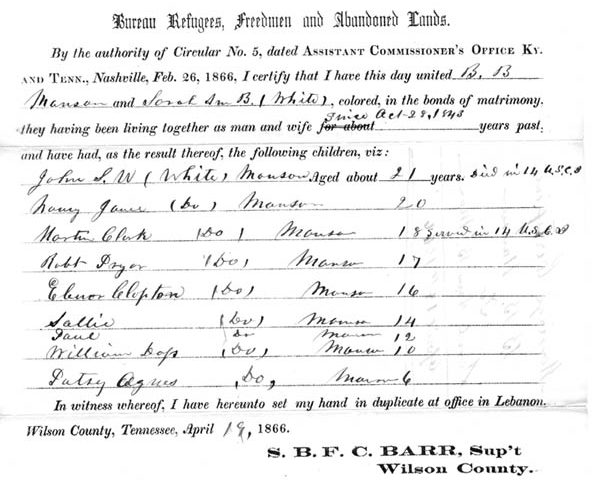 Bureau Refugees, Freedmen and Abandoned Lands.
By the authority of Circular No. 5, dated ASSISTANT COMMISSIONER'S OFFICE KY.
AND TENN., Nashville, Feb. 26, 1866, I certify that I have this day united B. B
Manson and Sarah Ann B. (White), colored, in the bonds of matrimony,
they having been living together as man and wife for about Since Oct. 28, 1843 years past,
and have had, as the result thereof, the following children, viz:
John S. W (White) Manson Aged about 21 years. Died in 14 U.S.C.I
Nancy Jane (Do) Manson 20
Martin Clark (Do) Manson 18 Served in 14 U.S.C.I
Robt Pryor (Do) Manson 17
Elenor Clopton (Do) Manson 16
Sallie (Do) Manson 14
Paul Do Manson 12
William Doss (Do) Manson 10
Patsy Agnes Do, Manson 6
In witness whereof, I have hereunto set my hand in duplicate at office in Lebanon,
Wilson County, Tennessee, April 19, 1866.
S. B. F. C. BARR, Sup't
Wilson County.